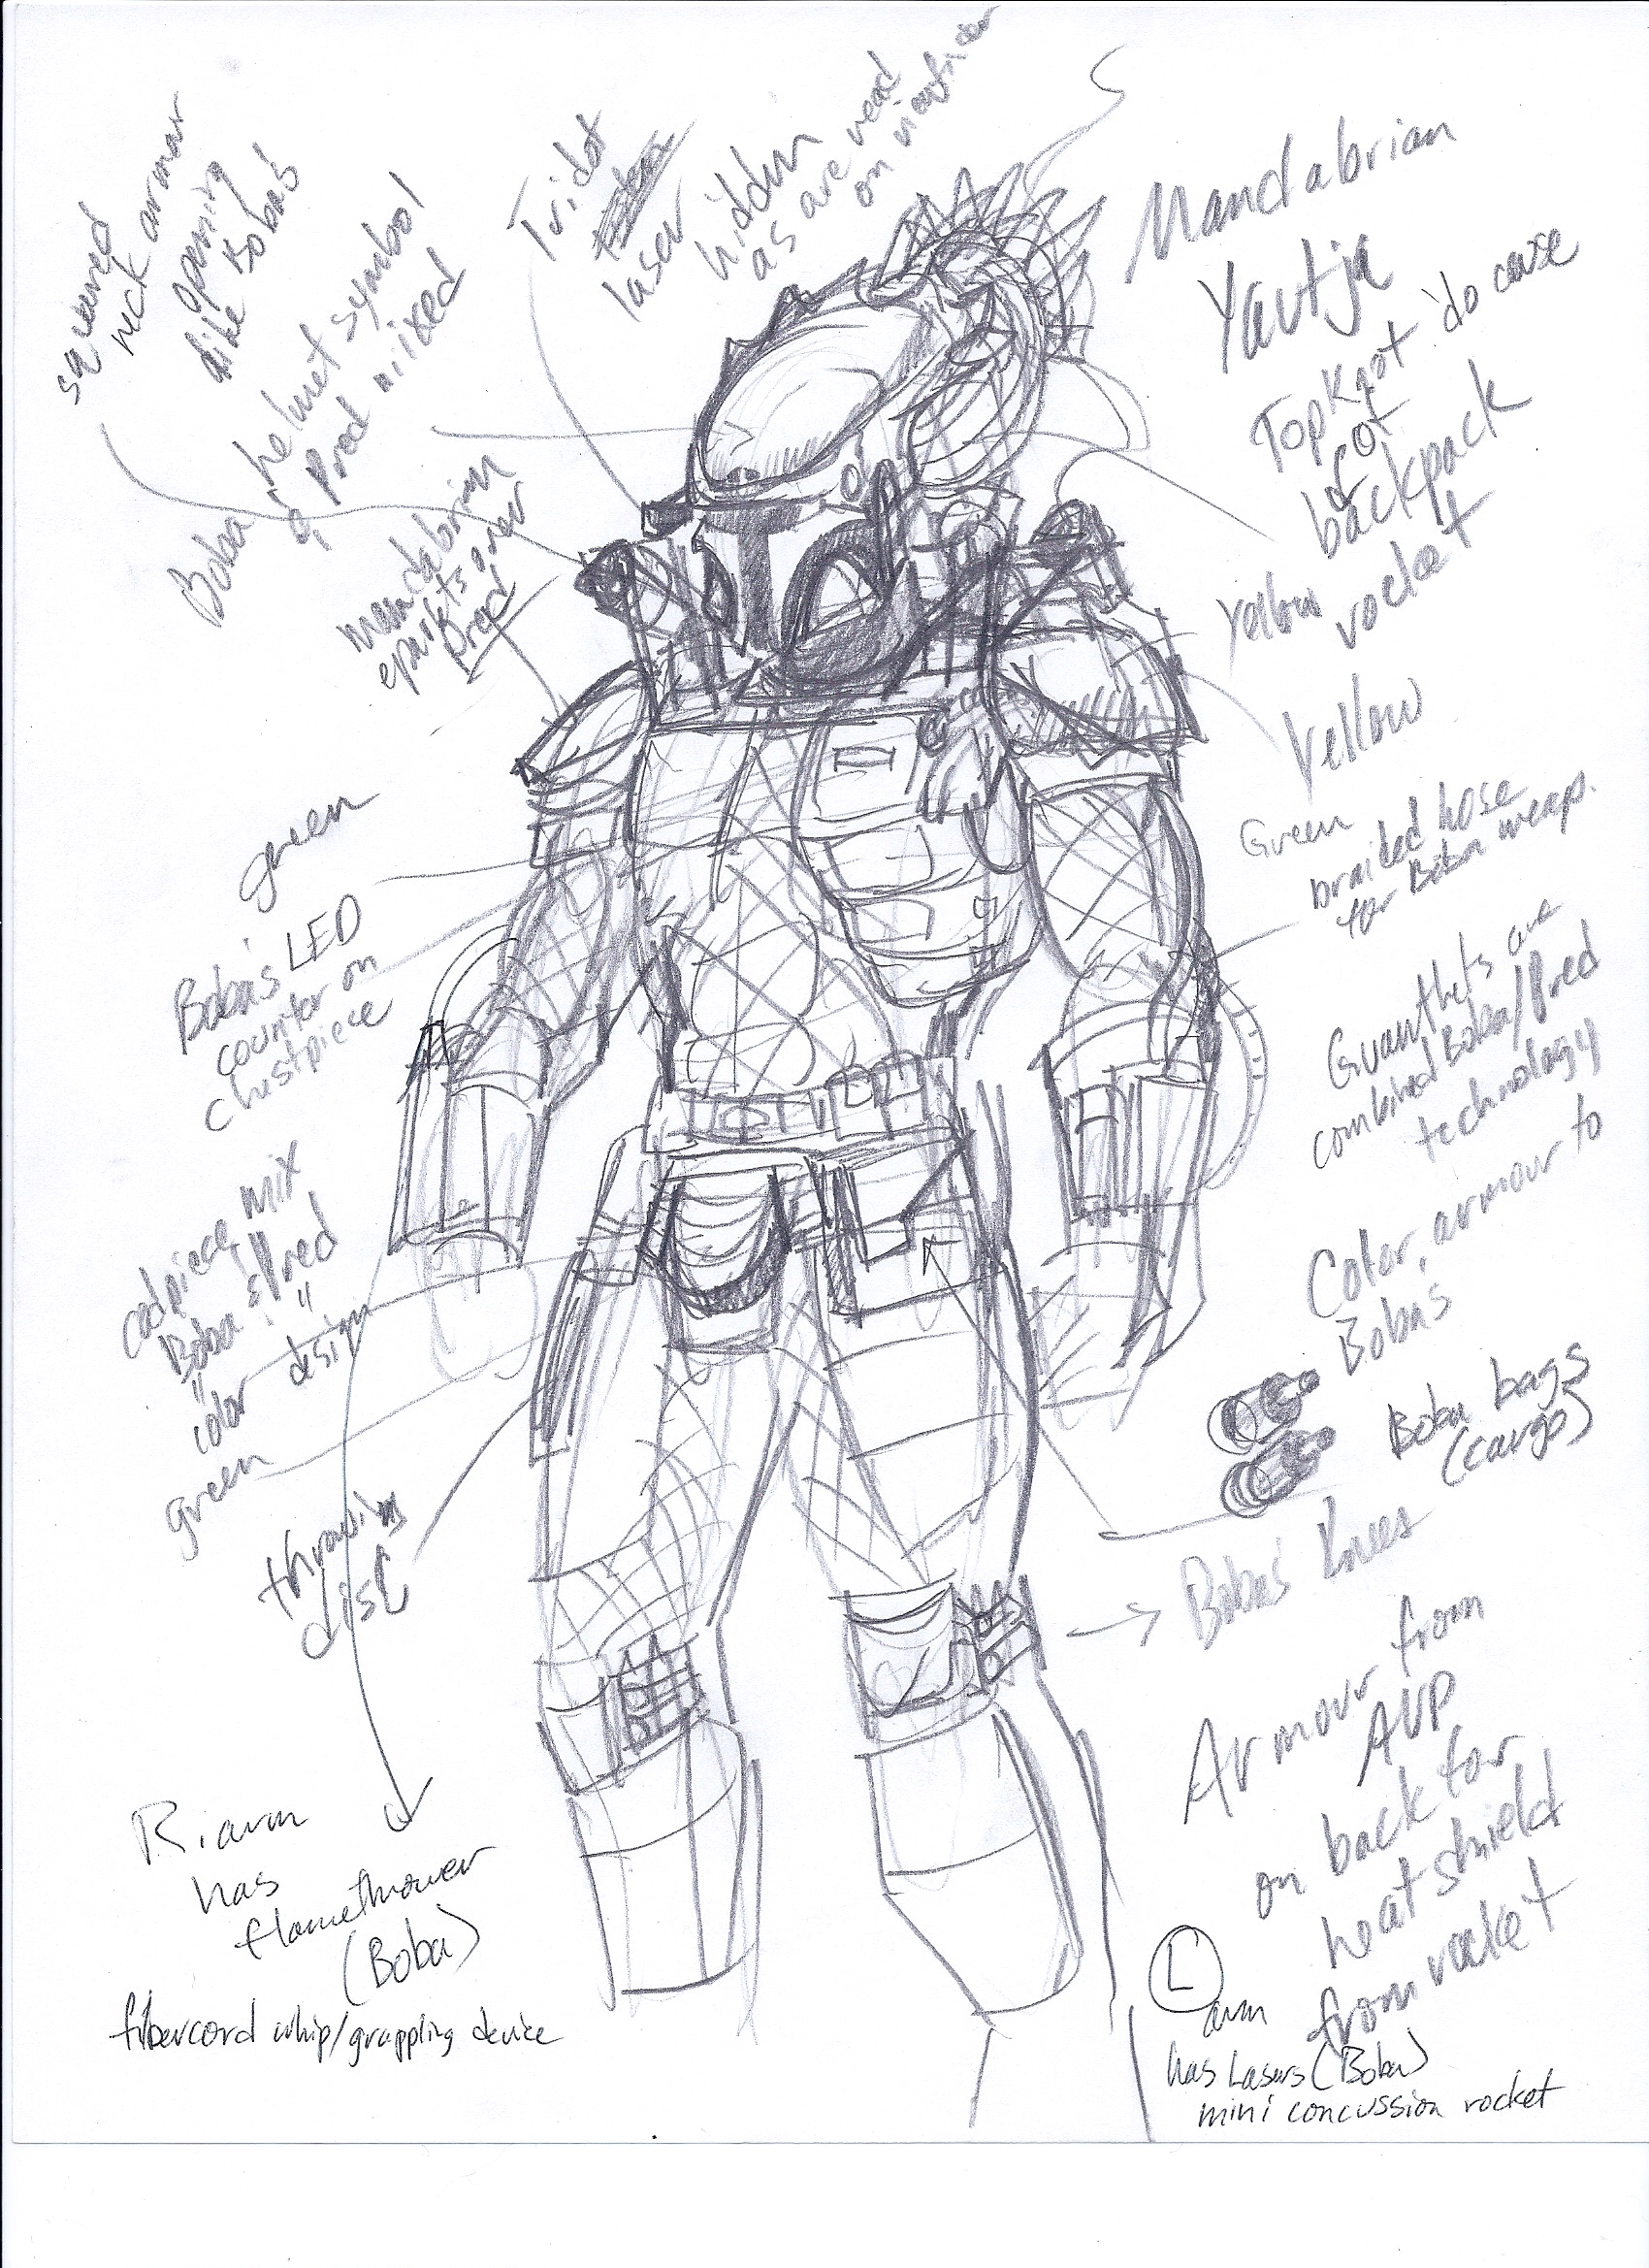 squared
neck armor
opening
like Boba's
Boba helmet symbol
& Pred mixed
Tridot
laser
hidden
as are read
on
mandalorian
on over
Pred
Mandalorian
Yautja
Top Knot 'do cause
of
backpack
rocket
Yellow
Yellow
Green
braided hose
for Boba weap.
green
Boba's LED
counter on
chestpiece
Guanthets are
combined Boba/Pred
technology
Color armour to
Boba's
codpiece mix
Boba & Pred
"color" design
green
throwing
disc
Boba bags
(cargo)
Boba's knees
Armour from
AVP
on back for
heat shield
from rocket
R. arm
has
flamethrower
(Boba)
fibercord whip/grappling device
L
arm
has Lasers (Boba)
mini concussion rocket